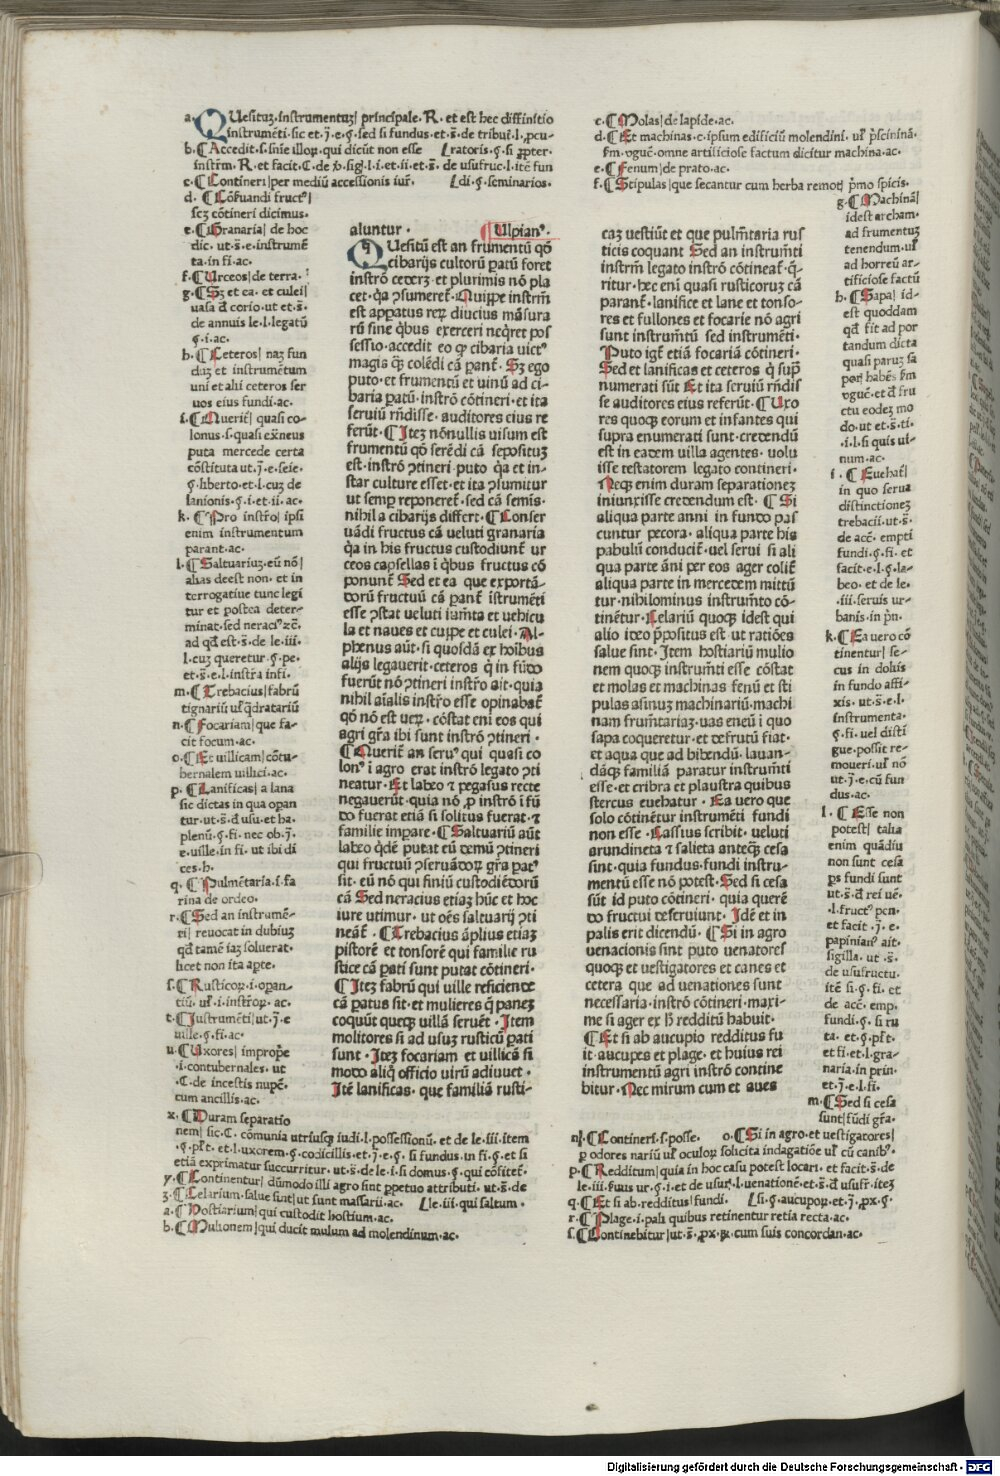 a. QUesituz.instrumentuz| principale.R. et est hec diffinitio
instrumēti.sic et.j̄.e.ꝯ.sed si fundus.et.s̄.de tribut̄.l.ꝓcu-
b. ¶ Accedit.s.sn̄ie illoꝝ.qui dicūt non esse ⌊ratoris.ꝯ.si ꝓpter-
instrm̄.R.et facit.C.de ꝟ.siḡ.l.i.et.ii.et s̄. de usufruc.l.itē fun
c. ¶ Contineri|per mediū accessionis iur̄. ⌊di.ꝯ.seminarios.
d. ¶ Cōſtuandi fructꝰ|
scz cōtineri dicimus.
e. ¶ Granaria| de hoc
dic.ut.s̄.e.instrumē
ta.in fi.ac.
f. ¶ Urceos|de terra.
g. ¶ Sz et ea.et culei|
uasa d̄ corio.ut et.s̄.
de annuis le.l.legatū
ꝯ.i.ac.
h. ¶ Ceteros| naz fun
duz et instrumētum
uni et alii ceteros ser
uos eius fundi.ac.
i. ¶ Querit̄| quasi co-
lonus.s.quasi ex̄neus
puta mercede certa
cōstituta ut.j̄.e.seie.
ꝯ.liberto.et.l.cuz de
lanionis.ꝯ.i.et.ii.ac.
k. ¶ Pro instr̄o| ipsi
enim instrumentum
parant.ac.
l. ¶ Saltuariuz.eū nō|
alias deest non.et in
terrogatiue tunc legi
tur et postea deter-
minat.sed neraciꝰ ꝛc̄.
ad qd̄ est.s̄.de le.iii.
l.cuz queretur.ꝯ.pe.
et.s̄.e.l.instr̄a infi.
m. ¶ Trebacius|fabrū
tignariū ul̄ q̄dratariū
n. ¶ Focariam|que fa-
cit focum.ac.
o. ¶ Et uillicam|cōtu-
bernalem uillici.ac.
p. ¶ Lanificas| a lana
sic dictas in qua oꝑan
tur.ut.s̄.d̄ usu.et ha-
plenū.ꝯ.fi.nec ob.j̄.
e.uille.in fi.ut ibi di
ces.h.
q. ¶ Pulmētaria.s.fa
rina de ordeo.
r. ¶ Sed an instrumē-
ti| reuocat in dubiuz
qd̄ tamē iaz soluerat.
licet non ita aꝑte.
s. ¶ Rusticoꝝ.i.oꝑan-
tiū.ul̄.i.instr̄oꝝ.ac.
t. ¶ Instrumēti|ut.j̄.e
uille.ꝯ.fi.ac.
u. ¶ Uxores| improp̄e
.i.contubernales. ut
.C.de incestis nupc̄.
cum ancillis.ac.
x. ¶ Duram separatio
nem| sic.C.cōmunia utriusqꝫ iudi.l.possessionū.et de le.iii.item
.ꝯ.pl̄t.et.l.uxorem.ꝯ.codicillis.et.j̄.e.ꝯ.si fundus.in fi.ꝯ.et si
etiā exprimatur succurritur.ut.s̄.de le.i.si domus.ꝯ.qui cōfitet̄.
y. ¶ Continentur| dūmodo illi agro sint ꝑpetuo attributi.ut.s̄.de
z. ¶ Celarium.salue sunt|ut sunt massarii.ac. ⌊le.iii.qui saltum.
a. ¶ Hostiarium|qui custodit hostium.ac.
b. ¶ Mulionem|qui ducit mulum ad molendinum.ac.
aluntur. ¶ Ulpianꝰ.
QUesitū est an frumentū qd̄
cibarijs cultorū ꝑatū foret
instrō cederz.et plurimis nō pla
cet.q̄a ꝯsumeret̄.Quippe instrm̄
est apꝑatus reꝝ diucius māsura
rū sine q̄bus exerceri neq̄ret pos
sessio.accedit eo qꝫ cibaria uictꝰ
magis qꝫ colēdi cā ꝑant̄. Sz ego
puto.et frumentū et uinū ad ci-
baria ꝑatū.instrō cōtineri.et ita
seruiū rn̄disse.auditores eius re
ferūt.¶ Itez nōnullis uisum est
frumentū qd̄ serēdi cā seposituz
est.instrō ꝯtineri.puto q̄a et in-
star culture esset.et ita ꝯsumitur
ut semꝑ reponeret̄.sed cā semīs.
nihil a cibarijs differt.¶ Conser
uādi fructus cā ueluti granaria
q̄a in his fructus custodiunt̄ ur
ceos capsellas i q̄bus fructus cō
ponunt̄ Sed et ea que exportā-
dorū fructuū cā ꝑant̄ istrumēti
esse ꝯstat ueluti iumēta et uehicu
la et naues et cuppe et culei.Al-
phenus aūt.si quosdā ex hoībus
alijs legauerit.ceteros q̄ in fūdo
fuerūt nō ꝯtineri instr̄o ait.quia
nihil aīalis instr̄o esse opinabat̄
qd̄ nō est ueꝝ.cōstat eni eos qui
agri gr̄a ibi sunt instrō ꝯtineri.
¶ Querit̄ an seruꝰ qui quasi co
lonꝰ i agro erat instrō legato ꝯti
neatur.Et labeo ⁊ pegasus recte
negauerūt.quia nō ꝓ instrō i fū
do fuerat etiā si solitus fuerat.⁊
familie imꝑare.¶ Saltuariū aūt
labeo qd̄ē putat eū demū ꝯtineri
qui fructuū ꝯseruādoꝝ gr̄a ꝑatꝰ
sit.eū nō qui finiū custodiēdorū
cā Sed neracius etiaz hūc et hoc
iure utimur.ut oēs saltuarij ꝯti
neāt̄.¶ Trebacius āplius etiaz
pistorē et tonsorē qui familie ru
stice cā ꝑati sunt putat cōtineri.
¶ Itez fabrū qui uille reficiende
cā ꝑatus sit.et mulieres q̄ panez
coquūt queqꝫ uillā seruēt.Item
molitores si ad usuz rusticū ꝑati
sunt.Itez focariam et uillicā si
modo aliq̄ officio uirū adiuuet.
Itē lanificas.que familiā rusti-
c. ¶ Molas|de lapide.ac.
d. ¶ Et machinas.e.ipsum edificiū molendini. ul̄ p̄scininā.
ẜm.uguc̄.omne artificiose factum dicitur machina.ac.
e. ¶ Fenum|de prato.ac.
f. ¶ Stipulas|que secantur cum herba remot̄ p̄mo spicis.
caz uestiūt et que pulmētaria rus
ticis coquant Sed an instrumēti
instrm̄ legato instrō cōtineat̄.q̄-
ritur.hec eni quasi rusticoruz cā
parant̄.lanifice et lane et tonso-
res et fullones et focarie nō agri
sunt instrumētū sed instrumēti.
Puto igit̄ etiā focariā cōtineri.
Sed et lanificas et ceteros q̄ sup̄
numerati sūt Et ita seruiū rn̄dis
se auditores eius referūt.¶ Uxo
res quoqꝫ eorum et infantes qui
supra enumerati sunt.credendū
est in eadem uilla agentes.uolu
isse testatorem legato contineri.
Neqꝫ enim duram separationez
iniunxisse credendum est. ¶ Si
aliqua parte anni in fundo pas
cuntur pecora.aliqua parte his
pabulū conducit̄.uel serui si ali
qua parte āni per eos ager colit̄
aliqua parte in mercedem mittū
tur.nihilominus instrumēto cō-
tinētur.Celariū quoqꝫ idest qui
alio ideo p̄positus est.ut ratiōes
salue sint.Item hostiariū mulio
nem quoqꝫ instrumēti esse cōstat
et molas et machinas fenū et sti
pulas asinuz machinariū.machi
nam frumētariaz.uas eneū i quo
sapa coqueretur.et defrutū fiat.
et aqua que ad bibendū.lauan-
dāqꝫ familiā paratur instrumēti
esse.et cribra et plaustra quibus
stercus euehatur. Ea uero que
solo cōtinētur instrumēti fundi
non esse.Cassius scribit.ueluti
arundineta ⁊ salicta anteqꝫ cesa
sint.quia fundus.fundi instru-
mentū esse nō potest.Sed si cesa
sūt id puto cōtineri.quia querē
do fructui deseruiunt.Idē et in
palis erit dicendū.¶ Si in agro
uenacionis sint puto uenatores
quoqꝫ et uestigatores et canes et
cetera que ad uenationes sunt
necessaria.instrō cōtineri.maxi-
me si ager ex h̄ redditū habuit.
¶ Et si ab aucupio redditus fu
it.aucupes et plage.et huius rei
instrumentū agri instrō contine
bitur.Nec mirum cum et aues
g. ¶ Machinā|
idest archam.
ad frumentuz
tenendum.ul̄
ad horreū ar-
tificiose factū
h. ¶ Sapa| id-
est quoddam
qd̄ fit ad por
tandum dicta
quasi paruz sa
poꝝ habēs ẜm
uguc̄.et d̄ fru
ctu eodez mo
do.ut et.s̄.ti.
.i.l.si quis ui-
num.ac.
i. ¶ Euehat̄|
in quo serua
distinctionez
trebacii.ut.s̄.
de acc̄. empti
fundi.ꝯ.fi.et
facit.e.l.ꝯ.la-
beo.et de le.
.iii.seruis ur-
banis.in pn̄.
k. ¶ Ea uero cō
tinentur| se-
cus in doliis
in fundo affi-
xis.ut.s̄.e.l.
instrumenta.
ꝯ.fi.uel disti
gue.possit re-
moueri.ul̄ nō
ut.j̄.e.cū fun
dus.ac.
l. ¶ Esse non
potest| talia
enim quādiu
non sunt cesa
ꝑs fundi sunt
ut.s̄.d̄ rei uē.
.l.fructꝰ pen.
et facit.j̄.e.
papinianꝰ ait.
sigilla.ut.s̄.
de usufructu.
itē si.ꝯ.fi.et
de acc̄.emp.
fundi.ꝯ.si ru
ta.et.ꝯ.pl̄t.
et fi.et.l.gra-
naria.in prin.
et.j̄.e.l.fi.
m. ¶ Sed si cesa
sunt|fūdi gr̄a.
n. ¶ Contineri.s.posse. o. ¶ Si in agro.et uestigatores|
ꝑ odores nariū ul̄ oculoꝝ solicita indagatiōe ul̄ cū canibꝰ.
p. ¶ Redditum|quia in hoc casu potest locari.et facit.s̄.de
le.iii.seruis ur.ꝯ.i.et de usur̄.l.uenationē.et.s̄.d̄ usufr̄.itez
q. ¶ Et si ab.redditus|fundi. ⌊si.ꝯ.aucupoꝝ.et.j̄.ꝓx.ꝯ.
r. ¶ Plage.i.pali quibus retinentur retia recta.ac.
s. ¶ Continebitur|ut.s̄.ꝓx.ꝝ.cum suis concordan.ac.
Digitalisierung gefördert durch die Deutsche Forschungsgemeinschaft - DFG